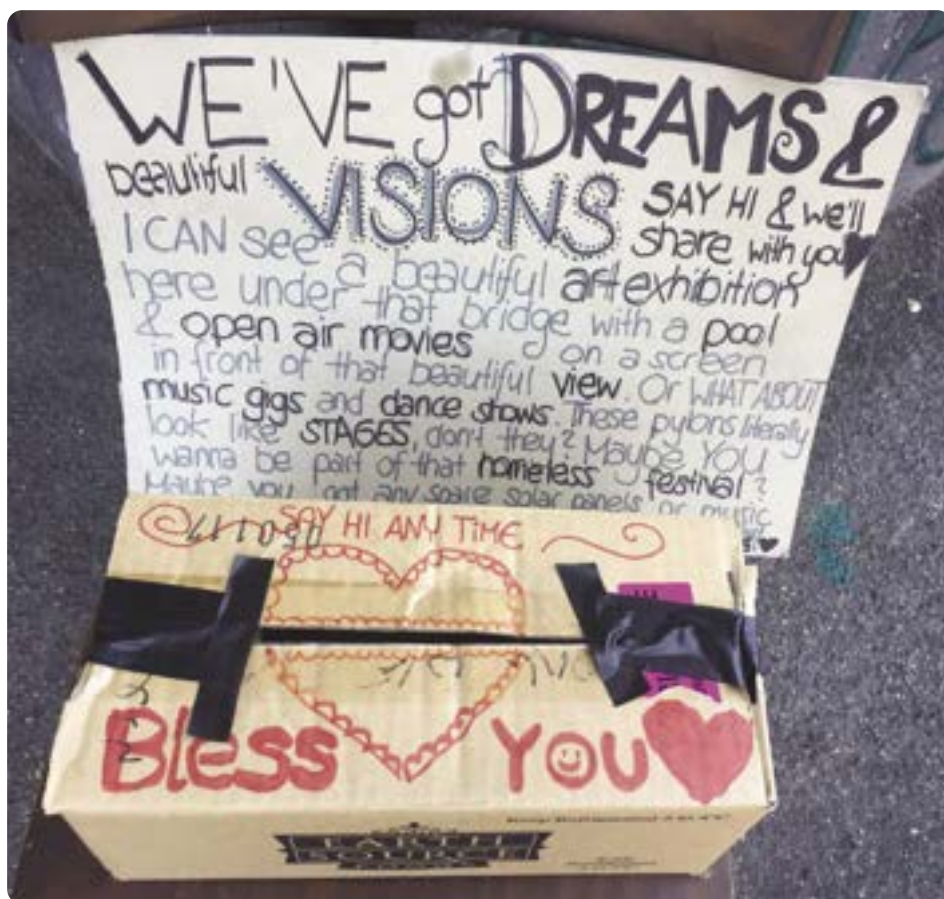 WE'VE got DREAMS &
beautiful VISIONS SAY HI & we'll
share with you
I CAN see a beautiful art exhibition
here under that bridge with a pool
& open air movies on a screen
in front of that beautiful view. Or WHAT ABOUT
music gigs and dance shows. These pylons literally
look like STAGES, don't they? Maybe YOU
wanna be part of that homeless festival?
Maybe you got any spare solar panels or music
SAY HI ANY TIME
Bless You
EARTH
SOURCE